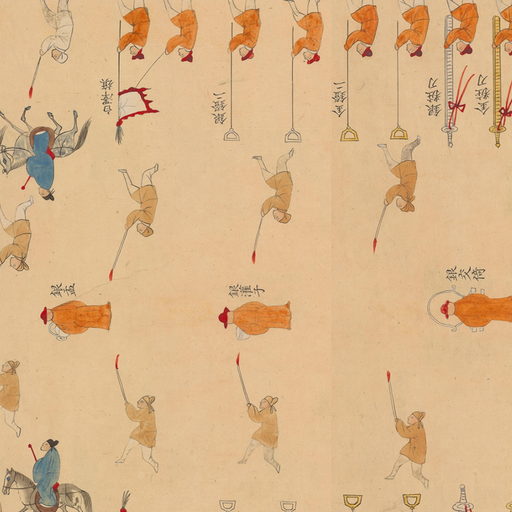 白澤旗
銀鐙二
金鐙二
銀粧刀
金粧刀
銀交倚
銀盂
銀灌子